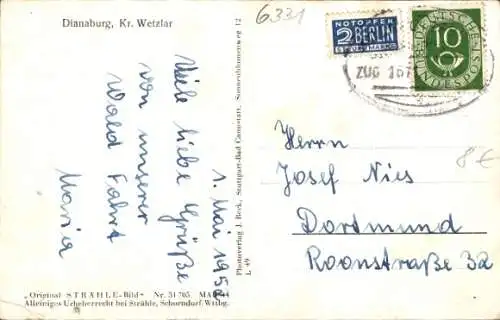 Dianaburg, Kr. Wetzlar
6331
NOTOPFER
2 BERLIN
STEUERMARKE
DEUTSCHE
10
BUNDESPOST
ZUG 167
1. Mai 195
Viele liebe Grüße
von unserer
Wald Fahrt
Maria
Photoverlag J. Beck, Stuttgart-Bad Cannstatt, Sonnenblumenweg 12
L 49
Herrn
Josef Nies
Dortmund
Roonstraße 32
8€
„Original STRÄHLE-Bild" Nr. 31 705
Alleiniges Urheberrecht bei Strähle, Schorndorf Wttbg.